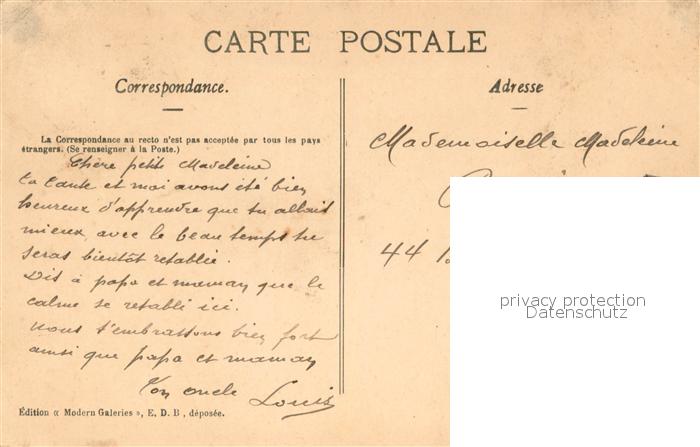 CARTE POSTALE
Correspondance.
Adresse
La Correspondance au recto n'est pas acceptée par tous les pays
étrangers. (Se renseigner à la Poste.)
Chère petite Madeleine
Ta tante et moi avons été bien
heureux d'apprendre que tu allais
mieux avec le beau temps tu
seras bientôt retablie.
Dis à papa et maman que le
calme se retabli ici.
Nous t'embrassons bien fort
ainsi que papa et maman
Ton oncle Louis
Édition « Modern Galeries », E. D. B., déposée.
Mademoiselle Madeleine
44
privacy protection
Datenschutz